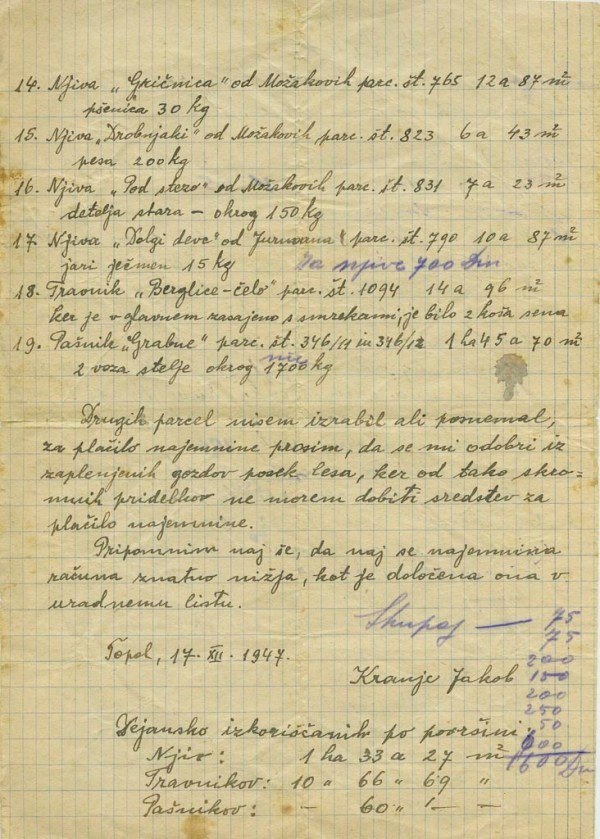 14. Njiva „Gričnica" od Možakovih parc. št. 765 12 a 87 m²
pšenica 30 kg
15. Njiva „Drobnjaki" od Možakovih parc. št. 823 6 a 43 m²
pesa 200 kg
16. Njiva „Pod stezo" od Možakovih parc. št. 831 7 a 23 m²
detelja stara – okrog 150 kg
17. Njiva „Dolgi deve" od Jurovana parc. št. 790 10 a 87 m²
jari ječmen 15 kg Za njive 700 Din
18. Travnik „Berglice-čelo" parc. št. 1094 14 a 96 m²
ker je v glavnem zasajeno s smrekami, je bilo 2 koša sena
19. Pašnik „Grabne" parc. št. 346/11 in 346/12 1 ha 45 a 70 m²
2 voza stelje okrog 1700 kg
Drugih parcel nisem izrabil ali posnemal,
za plačilo najemnine prosim, da se mi odobri iz
zaplenjenih gozdov posek lesa, ker od tako skro=
mnih pridelkov ne morem dobiti sredstev za
plačilo najemnine.
Pripomnim naj še, da naj se najemnina
računa znatno nižja, kot je določena ona v
uradnemu listu.
Skupaj — 75
75
Topol, 17. XII. 1947. 200
Kranjc Jakob 150
200
250
50
Dejansko izkoriščanih po površini: 600
Njiv: 1 ha 33 a 27 m² 1600 Din
Travnikov: 10 " 66 " 69 "
Pašnikov: – 60 " – "